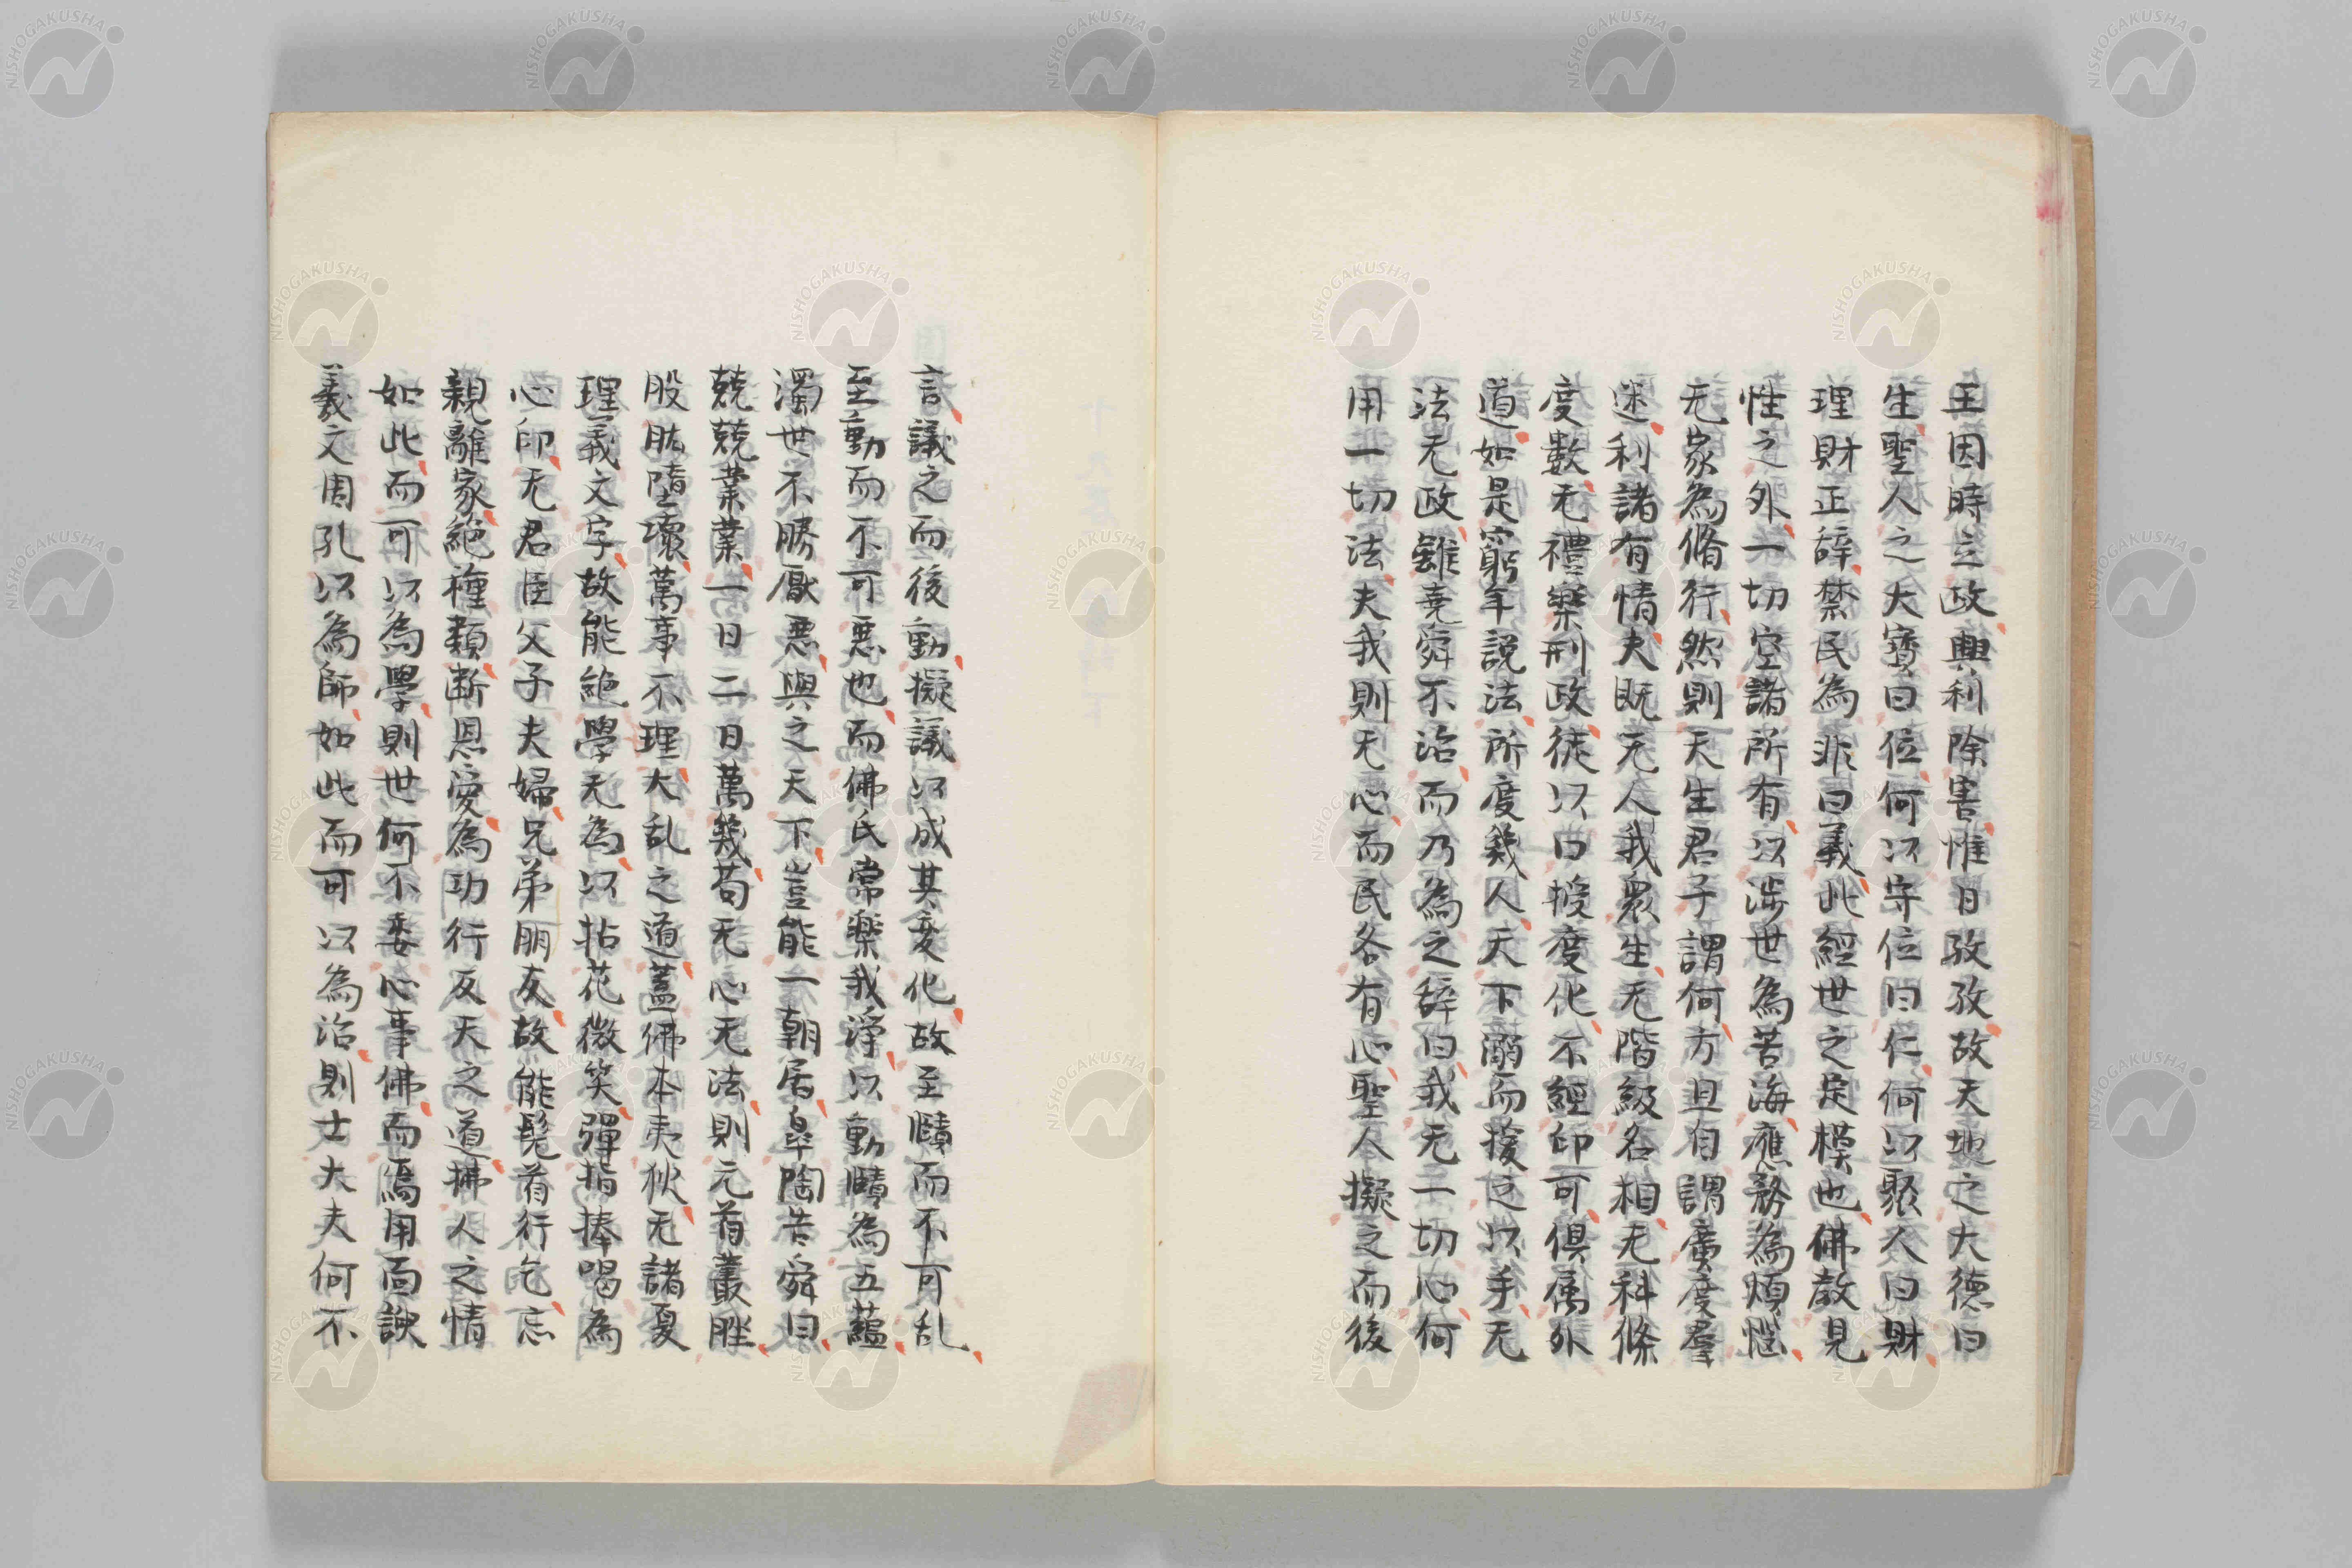 王因時立政興利除害惟日孜孜故天地之大德曰
生聖人之大寶曰位何以守位曰仁何以聚人曰財
理財正辭禁民為非曰義此經世之定模也佛教見
性之外一切空諸所有以涉世為苦海應務為煩惱
无家為脩行然則天生君子謂何方且自謂廣度羣
迷利諸有情夫既无人我衆生无階級名相无科條
度數无禮樂刑政徒以口授度化不經印可俱属外
道如是窮年説法所度幾人天下溺而援之以手无
法无政雖堯舜不治而乃為之辞曰我无一切心何
用一切法夫我則无心而民各有心聖人擬之而後
言議之而後動擬議以成其変化故至賾而不可乱
至動而不可悪也而佛氏常楽我淨以動賾為五蘊
濁世不勝厭悪與之天下豈能一朝居皐陶告舜曰
兢兢業業一日二日萬幾苟无心无法則元首叢脞
股肱墮壞萬事不理大乱之道蓋佛本夷狄无諸夏
理義文字故能絶學无為以拈花微笑彈指捧喝為
心印无君臣父子夫婦兄弟朋友故能髡首行乞忘
親離家絶種類断恩愛為功行反天之道拂人之情
如此而可以為學則世何不委心事佛而焉用面諛
羲文周孔以為師如此而可以為治則士大夫何不
NISHOGAKUSHA